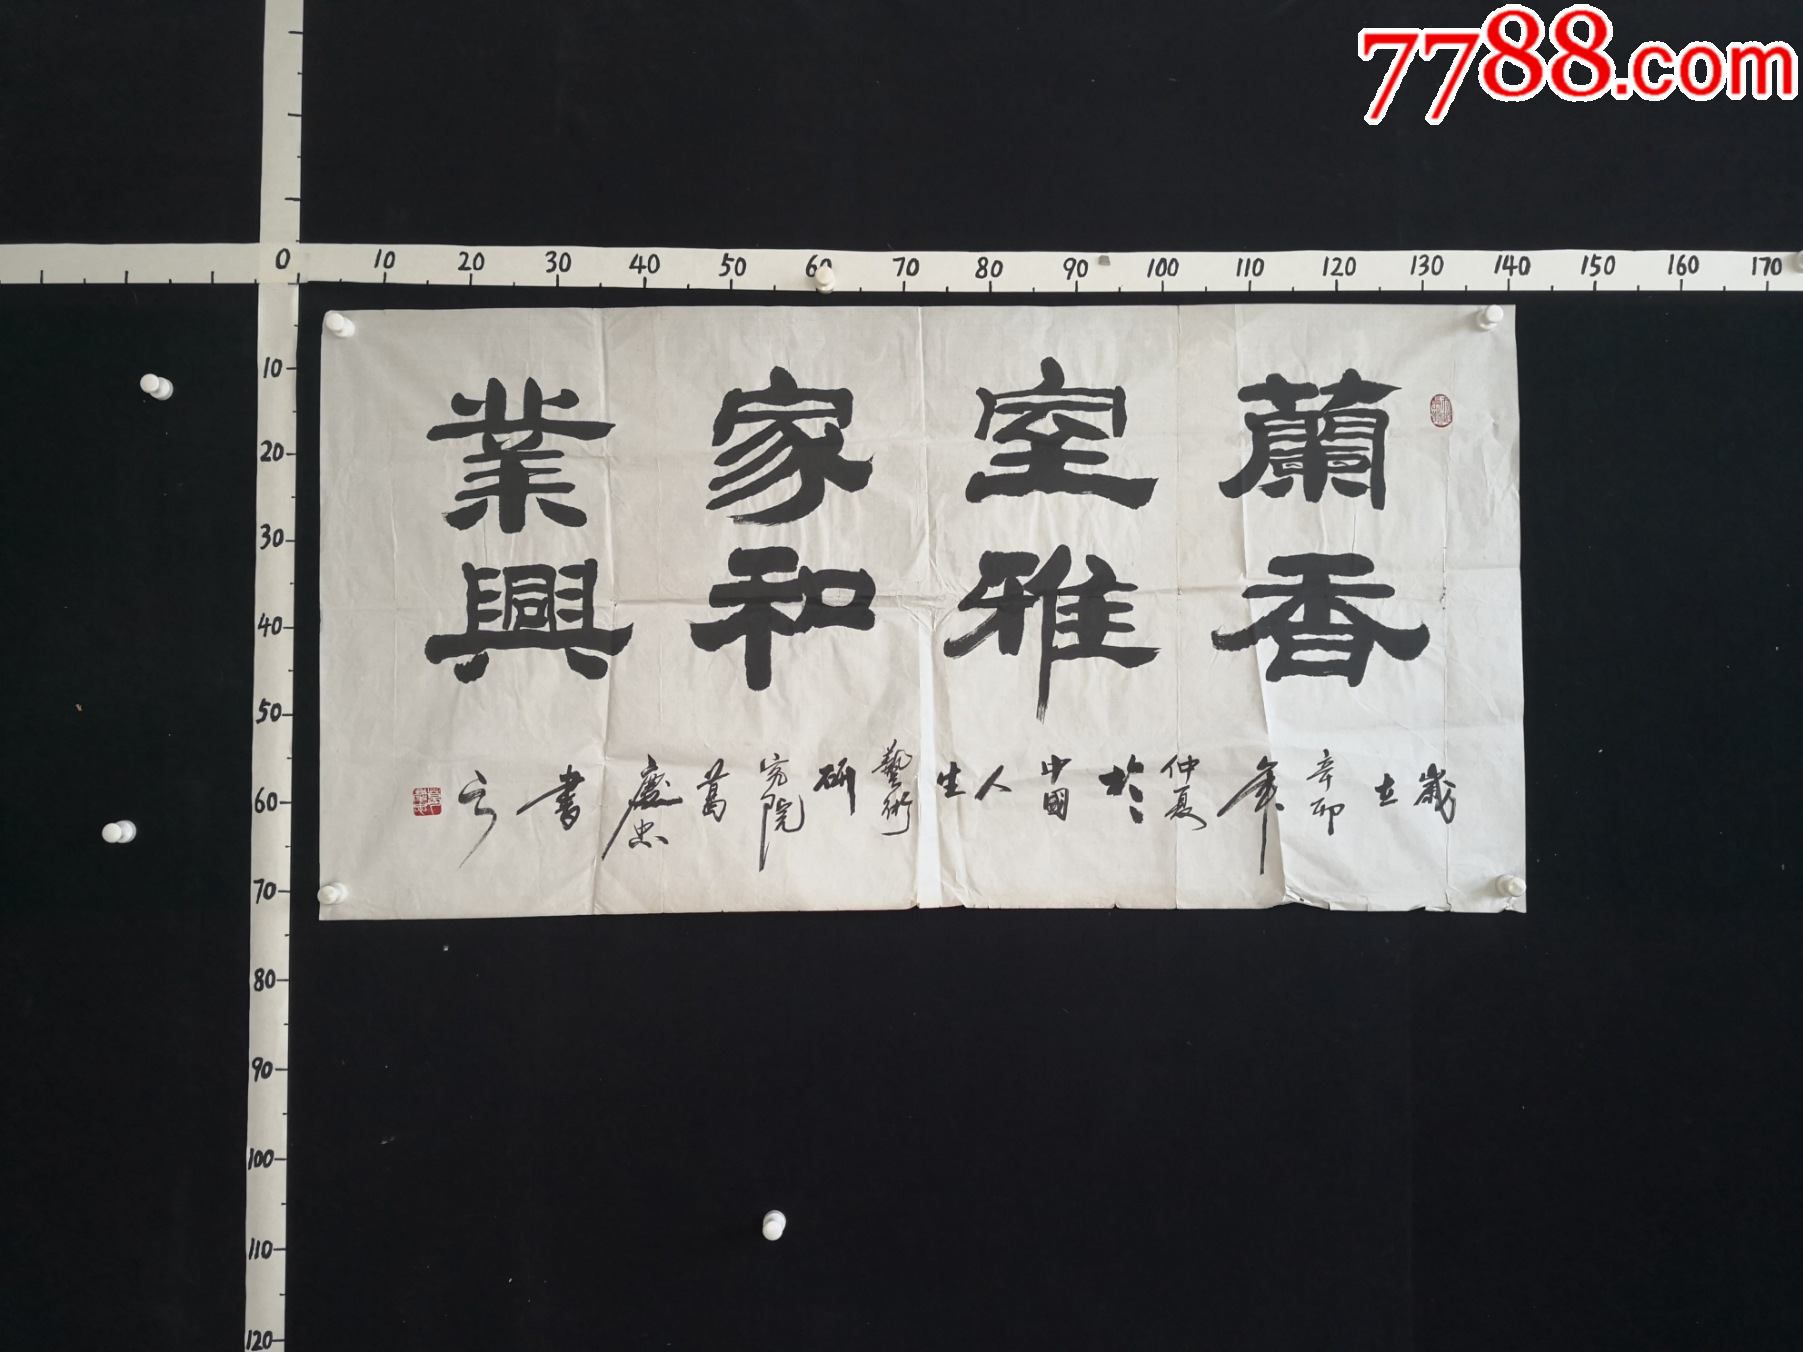 7788.com
0 10 20 30 40 50 60 70 80 90 100 110 120 130 140 150 160 170
10
20
30
40
50
60
70
80
90
100
110
120
蘭香
室雅
家和
業興
歲在辛卯年仲夏於中國人生藝術研究院葛慶忠書